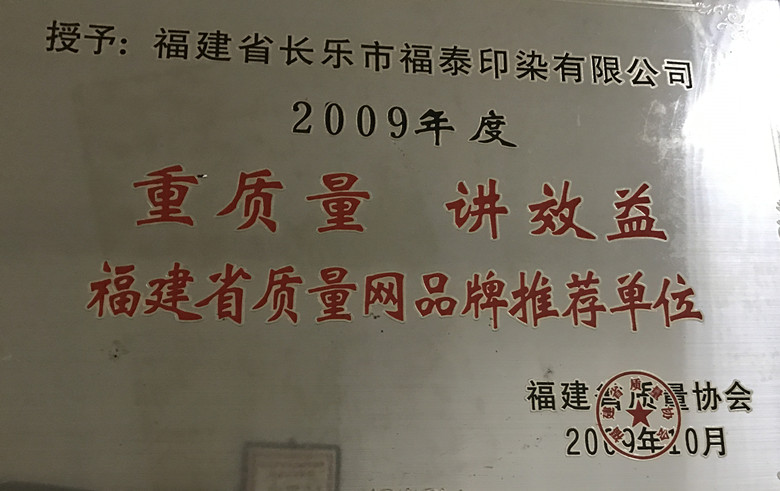 授予：福建省长乐市福泰印染有限公司
2009年度
重质量 讲效益
福建省质量网品牌推荐单位
福建省质量协会
2009年10月
福建省质量协会